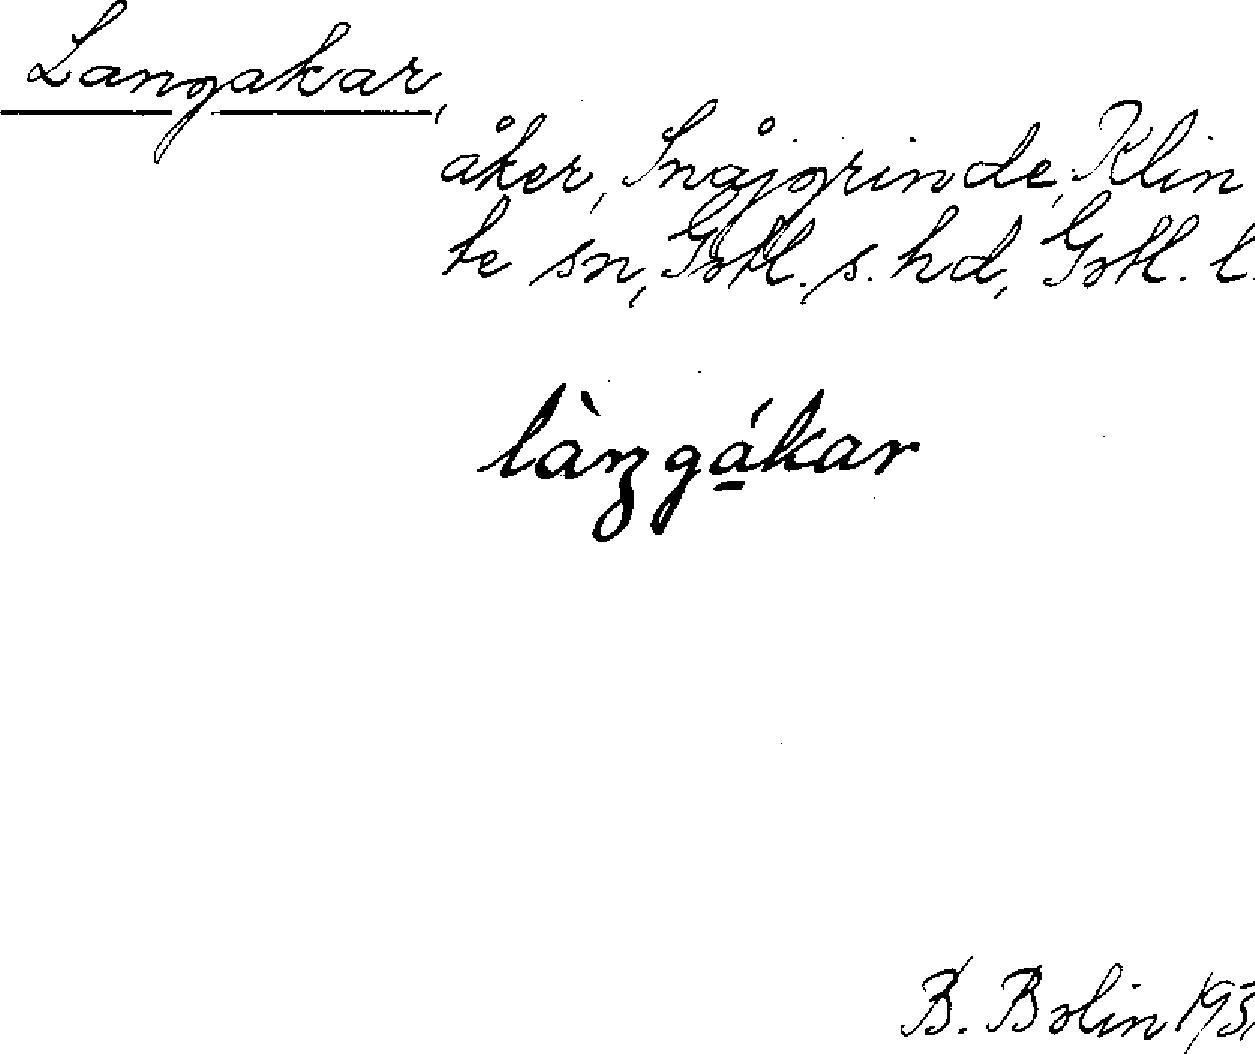 Langakar,
åker, Snåjgrinde, Klin
te sn, Gotl. s. hd, Gotl. l.
làŋgá̱kar
B. Bolin 193